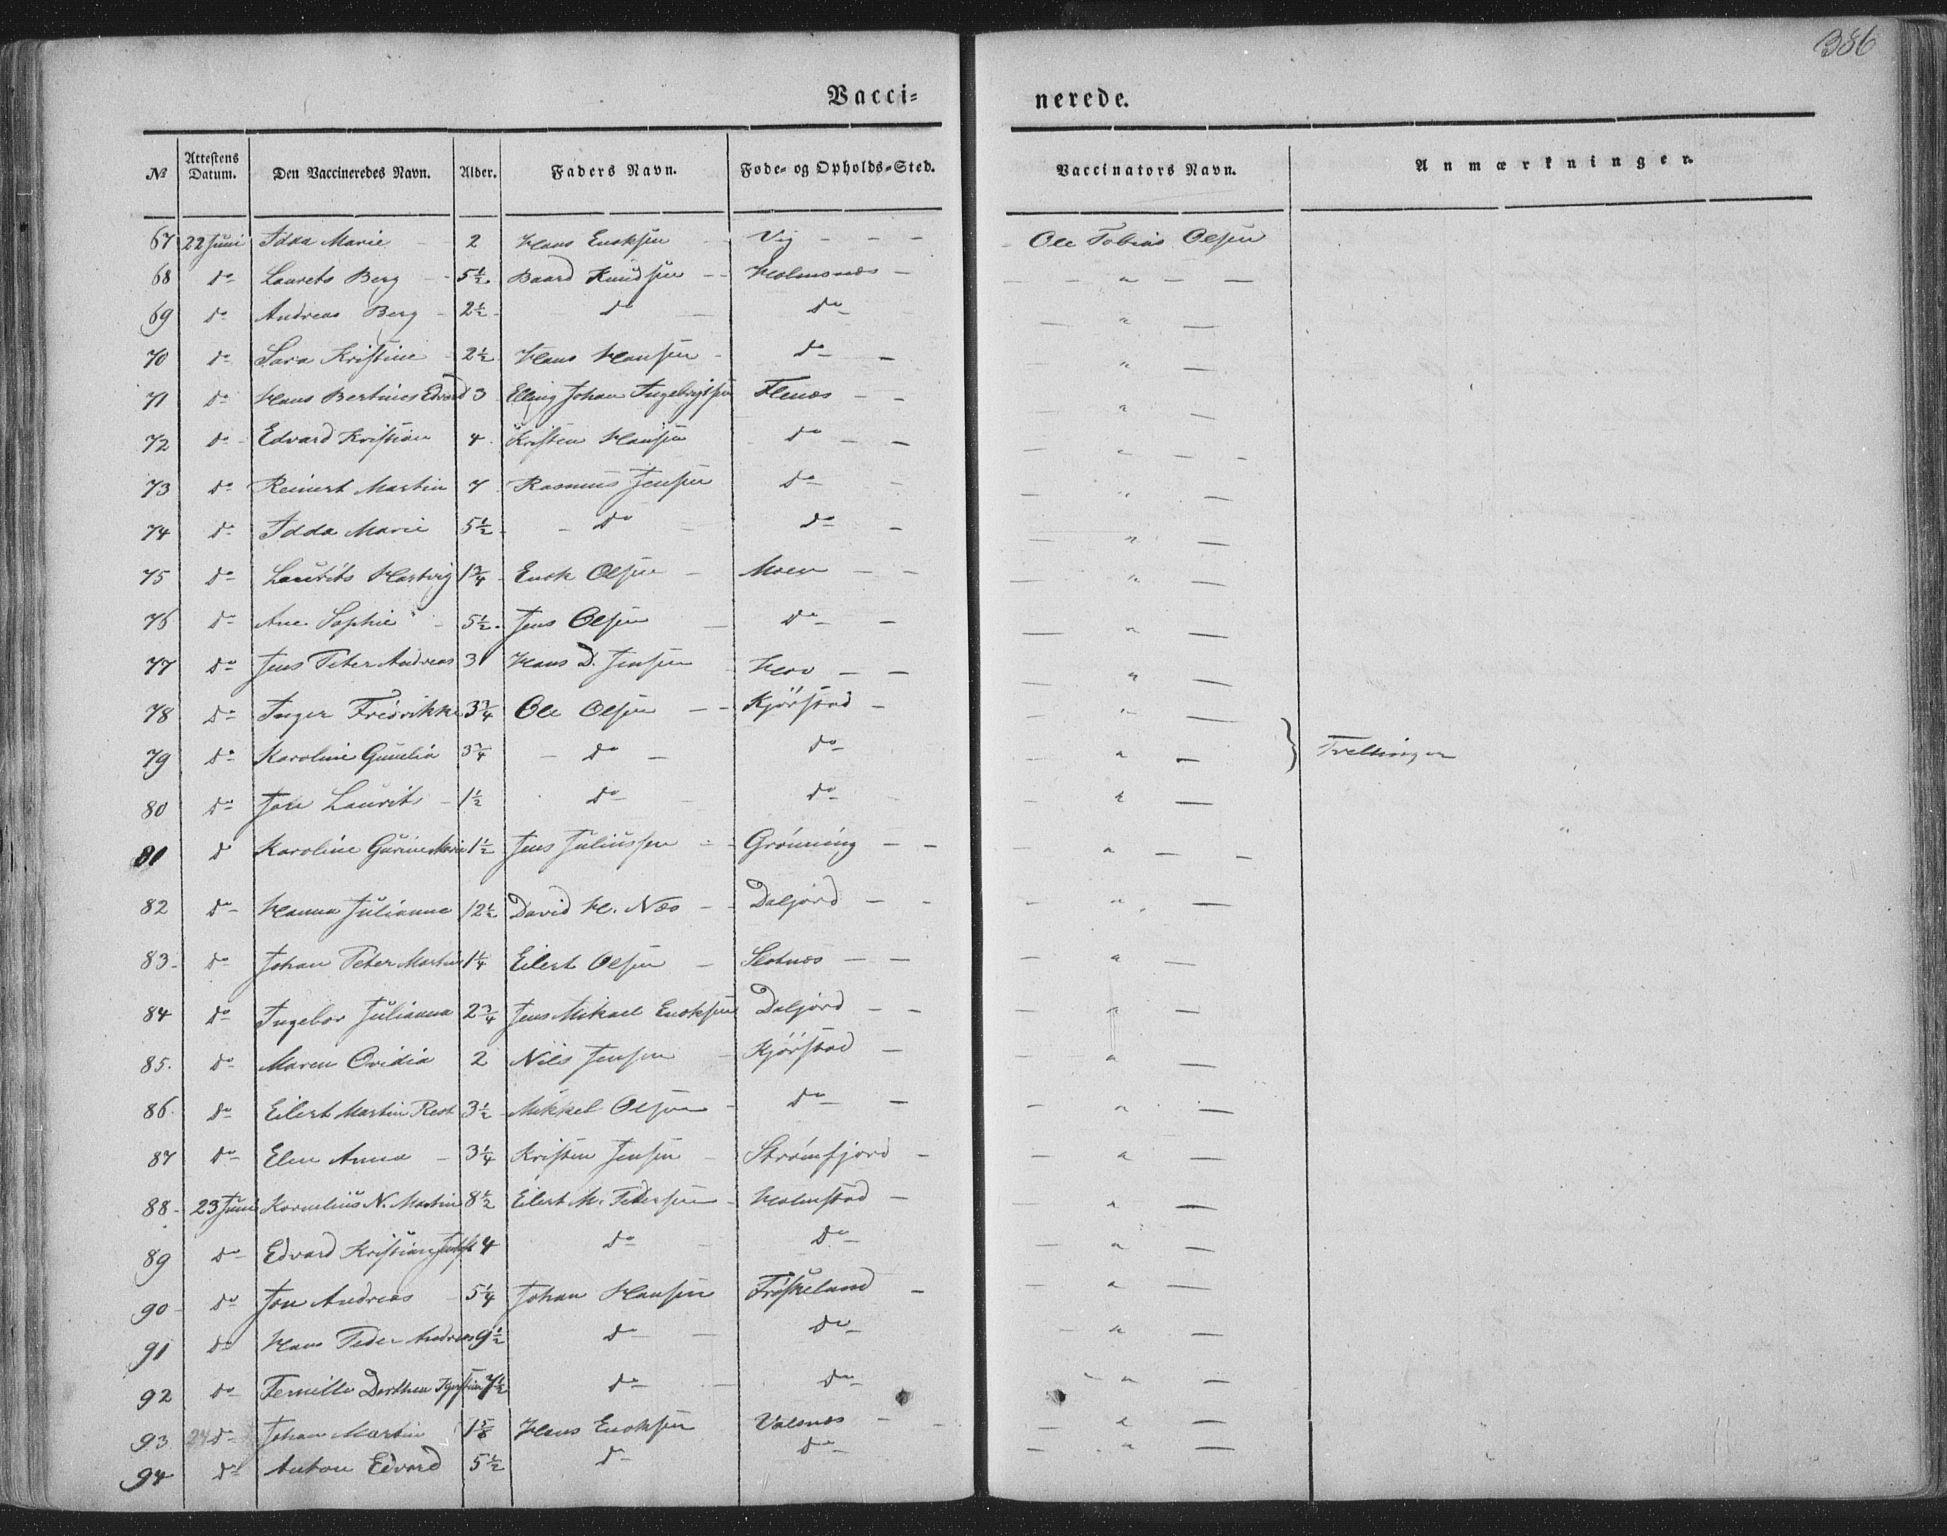 386
Vacci- nerede.
№ Attestens Datum. Den Vaccineredes Navn. Alder. Faders Navn. Føde- og Opholds-Sted. Vaccinators Navn. Anmærkninger.
67 22 Juni Idda Marie - 2 Hans Enoksen - Vig - - - Ole Tobias Olsen
68 do Laurets Berg - 5½ Baard Knudsen - - Holmsnæs - - - " - -
69 do Andreas Berg - 2½ - do - do - " -
70 do Sara Kristine - 2½ Hans Hansen - do - " -
71 do Hans Bertines Edvard 3 Elling Johan Ingebrigtsen Flenæs - - - " -
72 do Edvard Kristian 4 Kristen Hansen - do - - - " - -
73 do Reinert Martin 7 Rasmus Jensen do - - " -
74 do Idda Marie 5½ - do - do - - " -
75 do Laurits Hartvig 1¾ Enok Olsen - Moen - - - " -
76 do Ane Sophie - 5½ Jens Olsen - do - - " -
77 do Jens Peter Andreas 3 Hans D. Jensen - Hov - - - " -
78 do Inger Fredrikke 3¾ Ole Olsen - - Kjørstad - - " -
79 do Karoline Gunelia 3¾ - do - do - " - } Tvellinger
80 do Jon Laurit - 1½ do - do - - " -
81 d Karoline Gurine Marie 1½ Jens Juliussen - - Grønning - - - " - -
82 do Hanna Julianna 12½ David H. Næs - - Daljord - - - " -
83 - do Johan Peter Martin 1¼ Eilert Olsen - Slotnæs - - - " -
84 do Ingebor Julianna 2¾ Jens Mikael Enoksen Daljord - - - " -
85. do Maren Ovidia 2 Nils Jensen - Kjørstad - - " -
86 do Eilert Martin Rest 3½ Mikkel Olsen - do - - " -
87 do Elen Anna - 3¼ Kristen Jensen - Strømfjord - - " -
88 - 23 Juni Kornelius N. Martin 8½ Eilert M. Pedersen - Holmstad - - " -
89 do Edvard Kristian 4 do - do - " -
90 - do Jon Andreas - 5¼ Johan Hansen Frøskeland - - " -
91 do Hans Peder Andreas 9½ do - do - " -
92 do Pernille Dorthea 7½ do - do - " -
93 24 do Johan Martin 1⅝ Hans Enoksen Valsnæs - - - " -
94 do Anton Edvard 5½ do do - " -